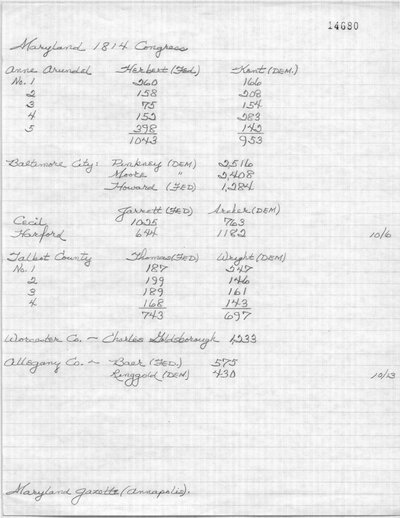 14680
Maryland 1814 Congress
Anne Arundel Herbert (Fed.) Kent (DEM.)
No. 1 260 166
2 158 208
3 75 154
4 152 283
5 398 142
1043 953
Baltimore City: Pinkney (DEM) 2516
Moore " 2,408
Howard (FED) 1,284
Jarrett (FED) Archer (DEM)
Cecil 1025 763
Harford 644 1182 10/6
Talbot County Thomas (FED) Wright (DEM)
No. 1 187 247
2 199 146
3 189 161
4 168 143
743 697
Worcester Co. - Charles Goldsborough 1,233
Allegany Co. - Baer (FED.) 575
Ringgold (DEM) 430 10/13
Maryland Gazette (Annapolis).